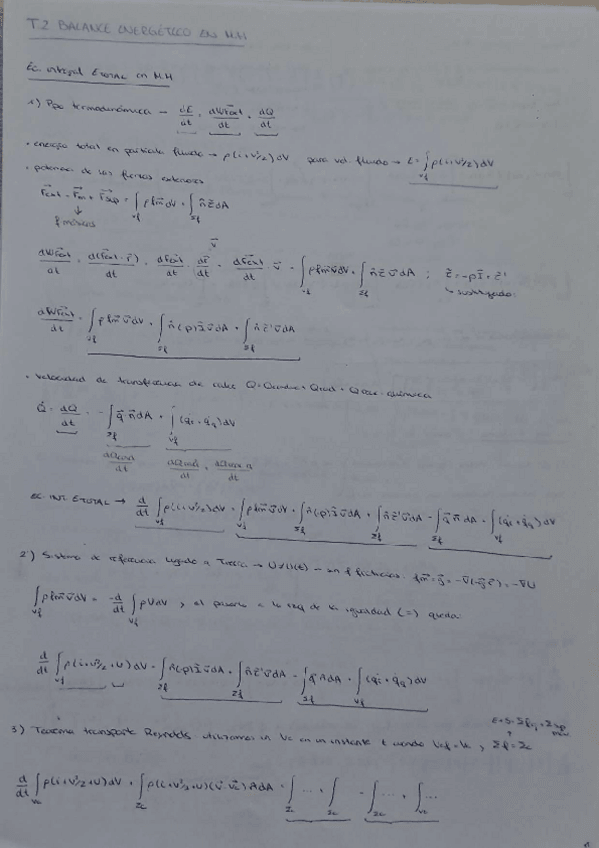 T.2 BALANCE ENERGÉTICO EN M.H
Ec. integral ETOTAL en M.H
1) Ppo termodinámica → dE/dt = dWFext/dt + dQ/dt
• energía total en partícula fluido → ρ(i+v²/2)dV para vol. fluido → E=∫Vf ρ(i+v²/2)dV
• potencia de las fuerzas exteriores
Fext = Fm + Fsup = ∫Vf ρfm dV + ∫Σf n̄ τ dA
↓
f másicas
dWFext/dt = d(Fext·r)/dt = dFext/dt · dr/dt = dFext/dt · v̄ = ∫Vf ρfm v̄ dV + ∫Σf n̄ τ v̄ dA ; τ=-pI+τ'
dWFext/dt = ∫Vf ρfm v̄ dV + ∫Σf n̄(-p)I v̄ dA + ∫Σf n̄ τ' v̄ dA
• Velocidad de transferencia de calor Q=Qcond+Qrad+Qreac. química
Q̇ = dQ/dt = -∫Σf q̄ n̄ dA + ∫Vf (q̇r+q̇q)dV
dQcond/dt dQrad/dt + dQreac q/dt
EC. INT. ETOTAL → d/dt ∫Vf ρ(i+v²/2)dV = ∫Vf ρfm v̄ dV + ∫Σf n̄(-p)I v̄ dA + ∫Σf n̄ τ' v̄ dA - ∫Σf q̄ n̄ dA + ∫Vf (q̇r+q̇q)dV
2) Sistema de referencia ligado a Tierra → U≠U(t) → sin f ficticias. fm=g=-∇(-g r)=-∇U
∫Vf ρfm v̄ dV = -d/dt ∫Vf ρU dV ; al pasarlo a la izq de la igualdad (=) queda:
d/dt ∫Vf ρ(i+v²/2+U)dV = ∫Σf n̄(-p)I v̄ dA + ∫Σf n̄ τ' v̄ dA - ∫Σf q̄ n̄ dA + ∫Vf (q̇r+q̇q)dV
3) Teorema transporte Reynolds. utilizamos un Vc en un instante t cuando Vf=Vc, Σf=Σc
d/dt ∫Vc ρ(i+v²/2+U)dV + ∫Σc ρ(i+v²/2+U)(v̄-v̄c)n̄ dA = ∫Σc ... + ∫Σc - ∫Σc ... + ∫Vc ...